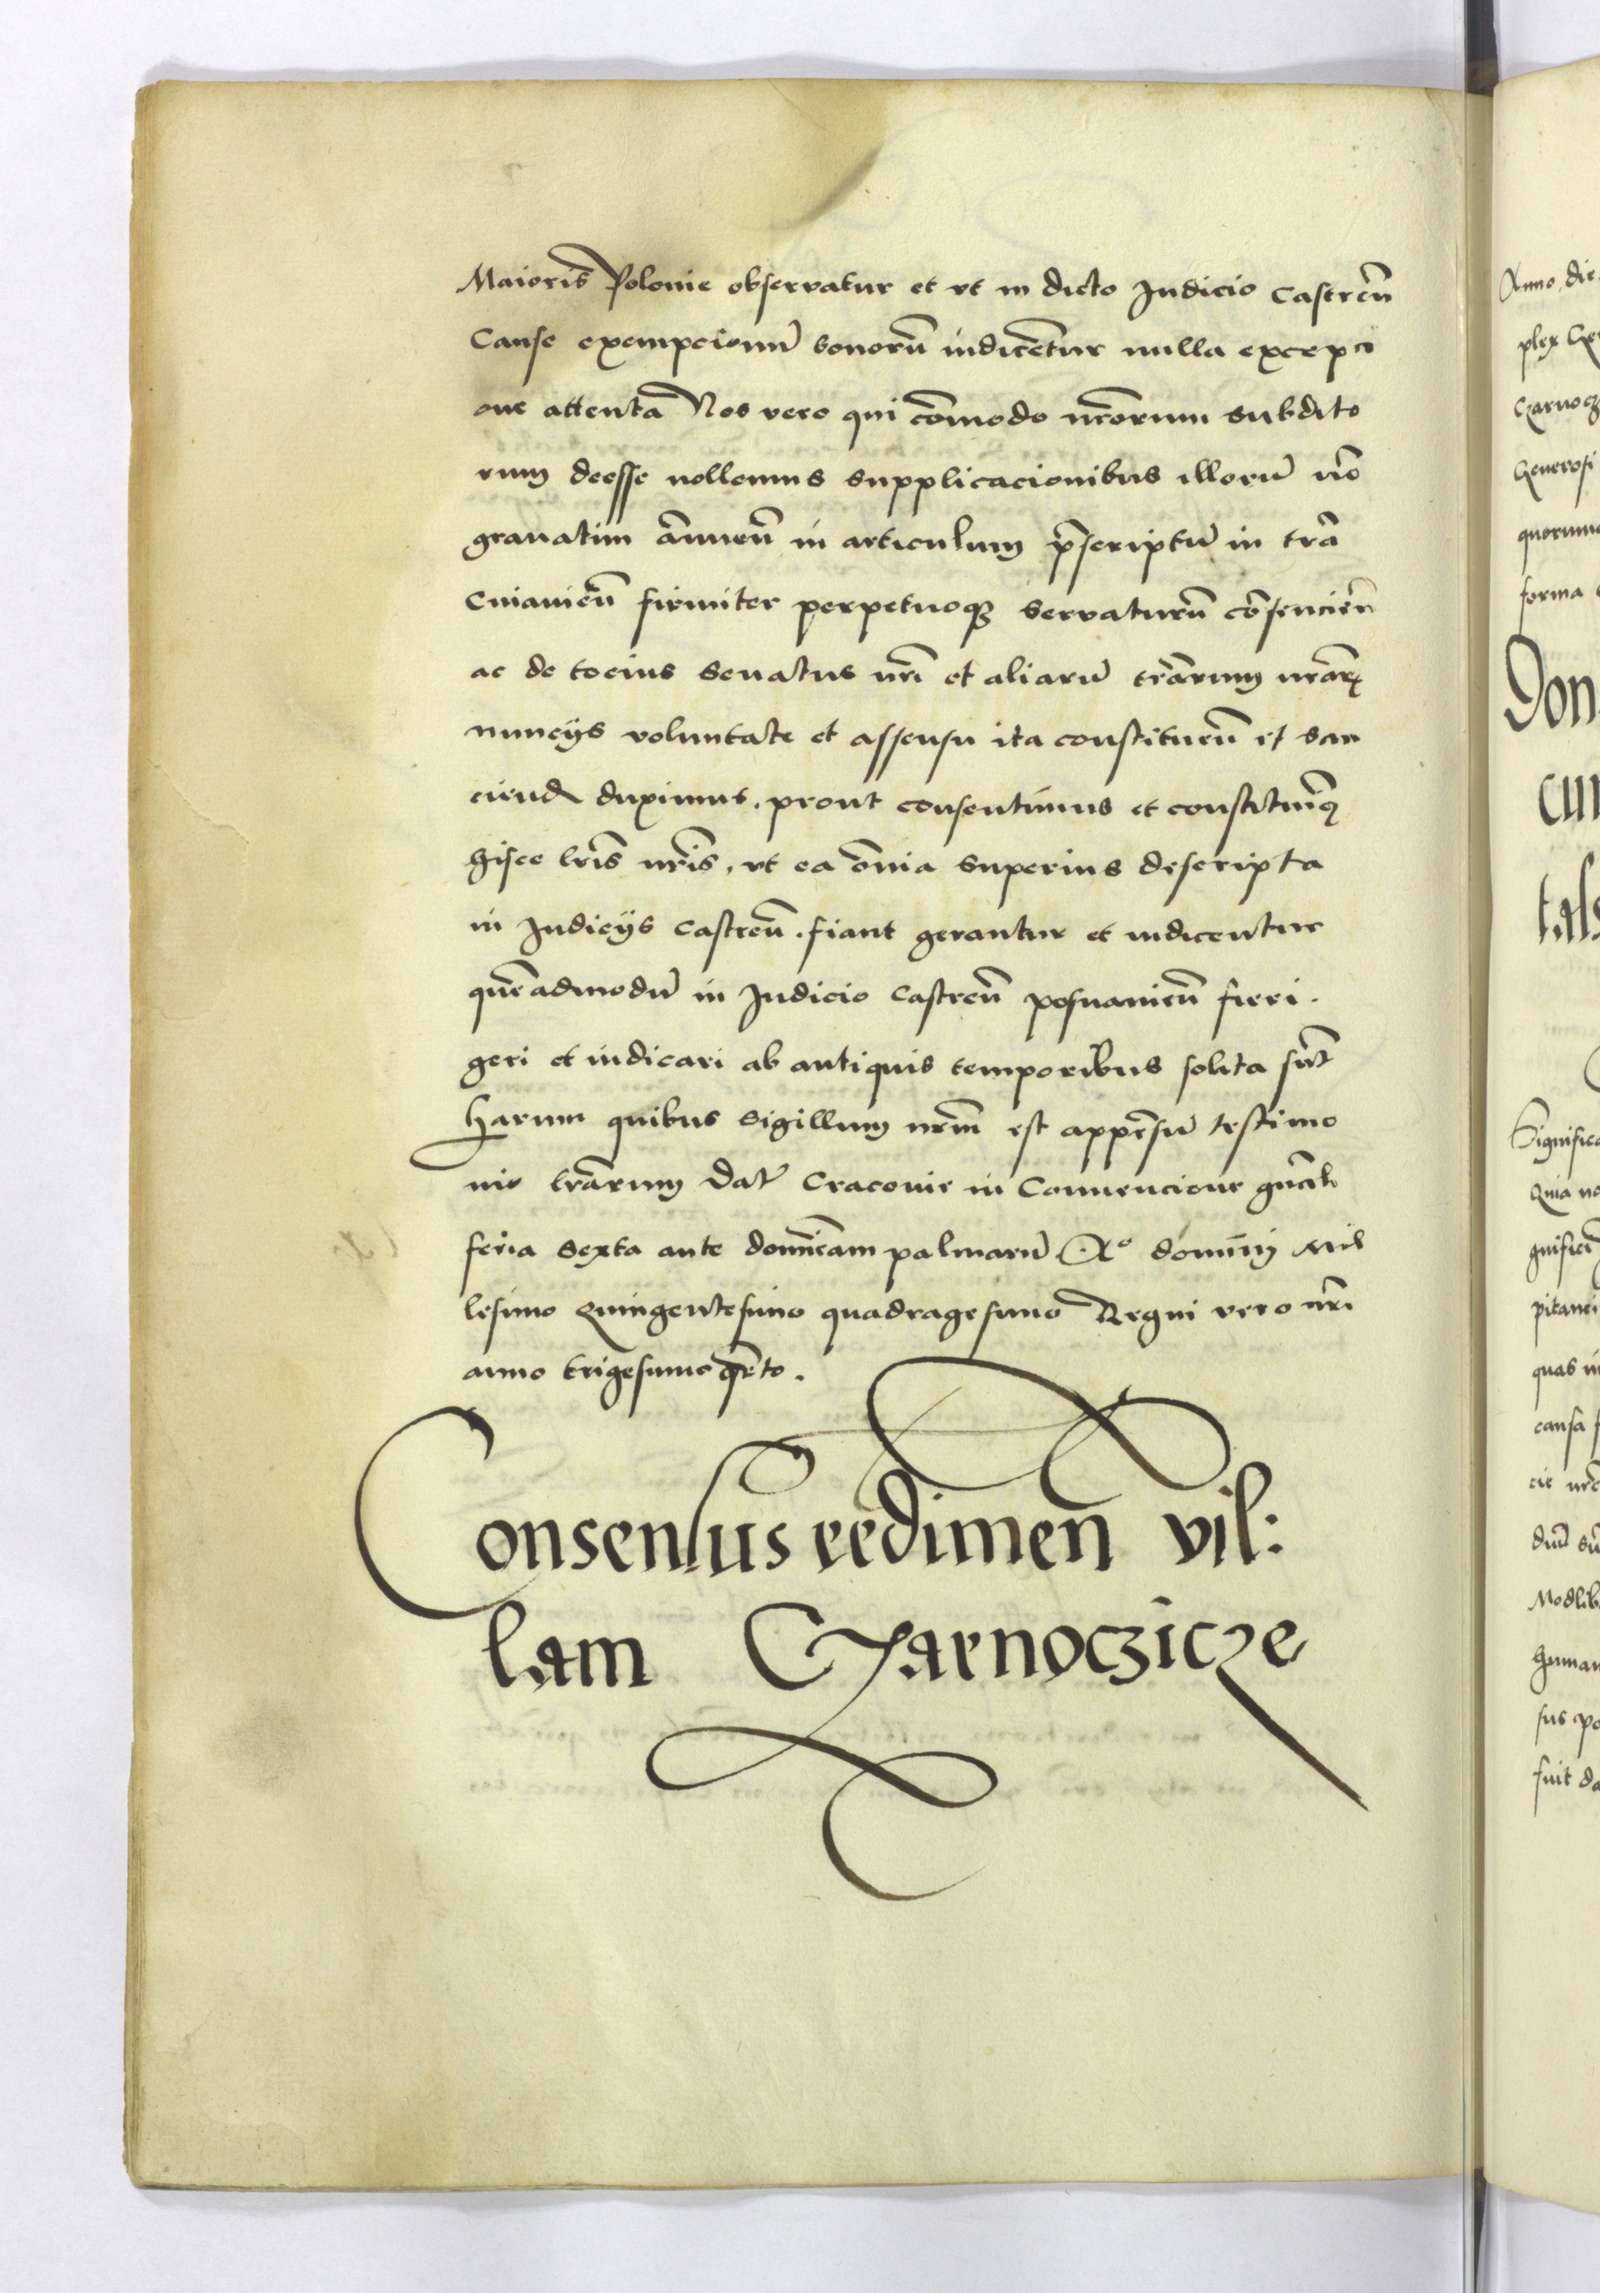 Maioris Polonie observatur et vt in dicto Judicio Castren̄
Cause exempcionū bonorū iudicēntur nulla excepci
one attenta Nos vero qui cōmodo nr̄orum subdito
rum deesse nollemus supplicacionibus illorū nō
grauatim ānuen̄ in articulum p̄scriptū in trā
Cuiauien̄ firmiter perpetuoqꝫ servaturū cōsencien̄
ac de tocius senatus nr̄i et aliarū trārum nr̄arꝝ
nuncijs voluntate et assensu ita constituen̄ et san
ciend duximus. prout consentimus et constituimꝰ
hisce lr̄is nr̄is, vt ea oīa superius descripta
in Judicijs castren̄. fiant gerantur et iudicentur
quēadmodū in Judicio castren̄ posnanien̄ fieri.
geri et iudicari ab antiquis temporibus solita sūt
harum quibus sigillum nr̄m est appēsū testimo
nio lrārum Dat̄ Cracovie in Conuencione gn̄cali
feria sexta ante domīcam palmarū Aº dominj Mil
lesimo Quingentesimo quadragesimo Regni vero nr̄i
anno trigesimo qrto.
Consensus redimen vil:
lam Czarnoczicze
Anno, die
plex
Czarnocz
Generosi
quorum
forma
Don
cun
tals
Significa
Quia no
gnifici
pitanei
quas in
causa f
cie nr̄e
dum̄ sū
Modlib
human
sus po
fuit da